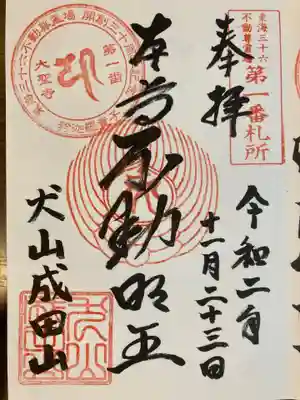 東海三十六
不動尊霊場
第一番札所
奉拝
令和二年
十一月二十三日
本尊不動明王
犬山成田山
第一番
大聖寺